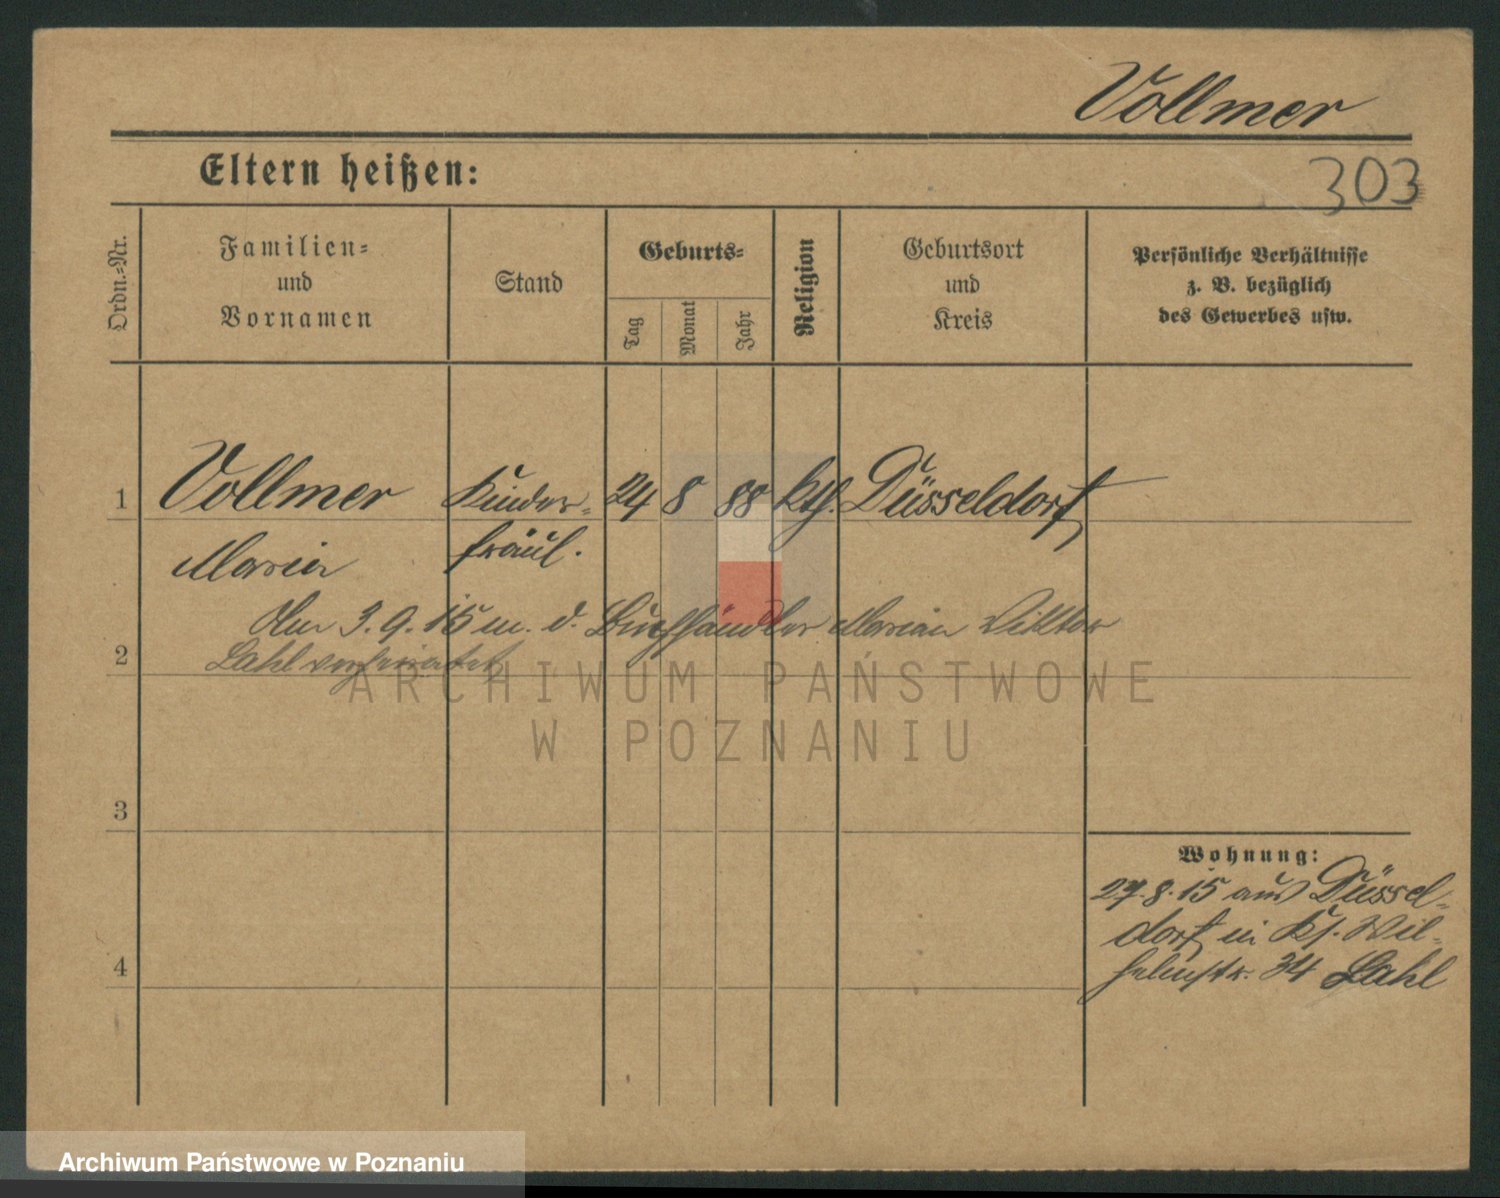 Vollmer
Eltern heißen:
303
Ordn.=Nr.
Familien=
und
Vornamen
Stand
Geburts=
Tag
Monat
Jahr
Religion
Geburtsort
und
Kreis
Persönliche Verhältnisse
z. B. bezüglich
des Gewerbes usw.
1 Vollmer Kinder= 24 8 88 kth. Düsseldorf
Maria fräul.
Am 3.9.15 m. d. Buchhändler Marian Viktor
2 Lahl verheiratet
ARCHIWUM PAŃSTWOWE
W POZNANIU
3
Wohnung:
27.8.15 aus Düssel=
dorf in Kr. Wil=
4 helmstr. 34 Lahl
Archiwum Państwowe w Poznaniu